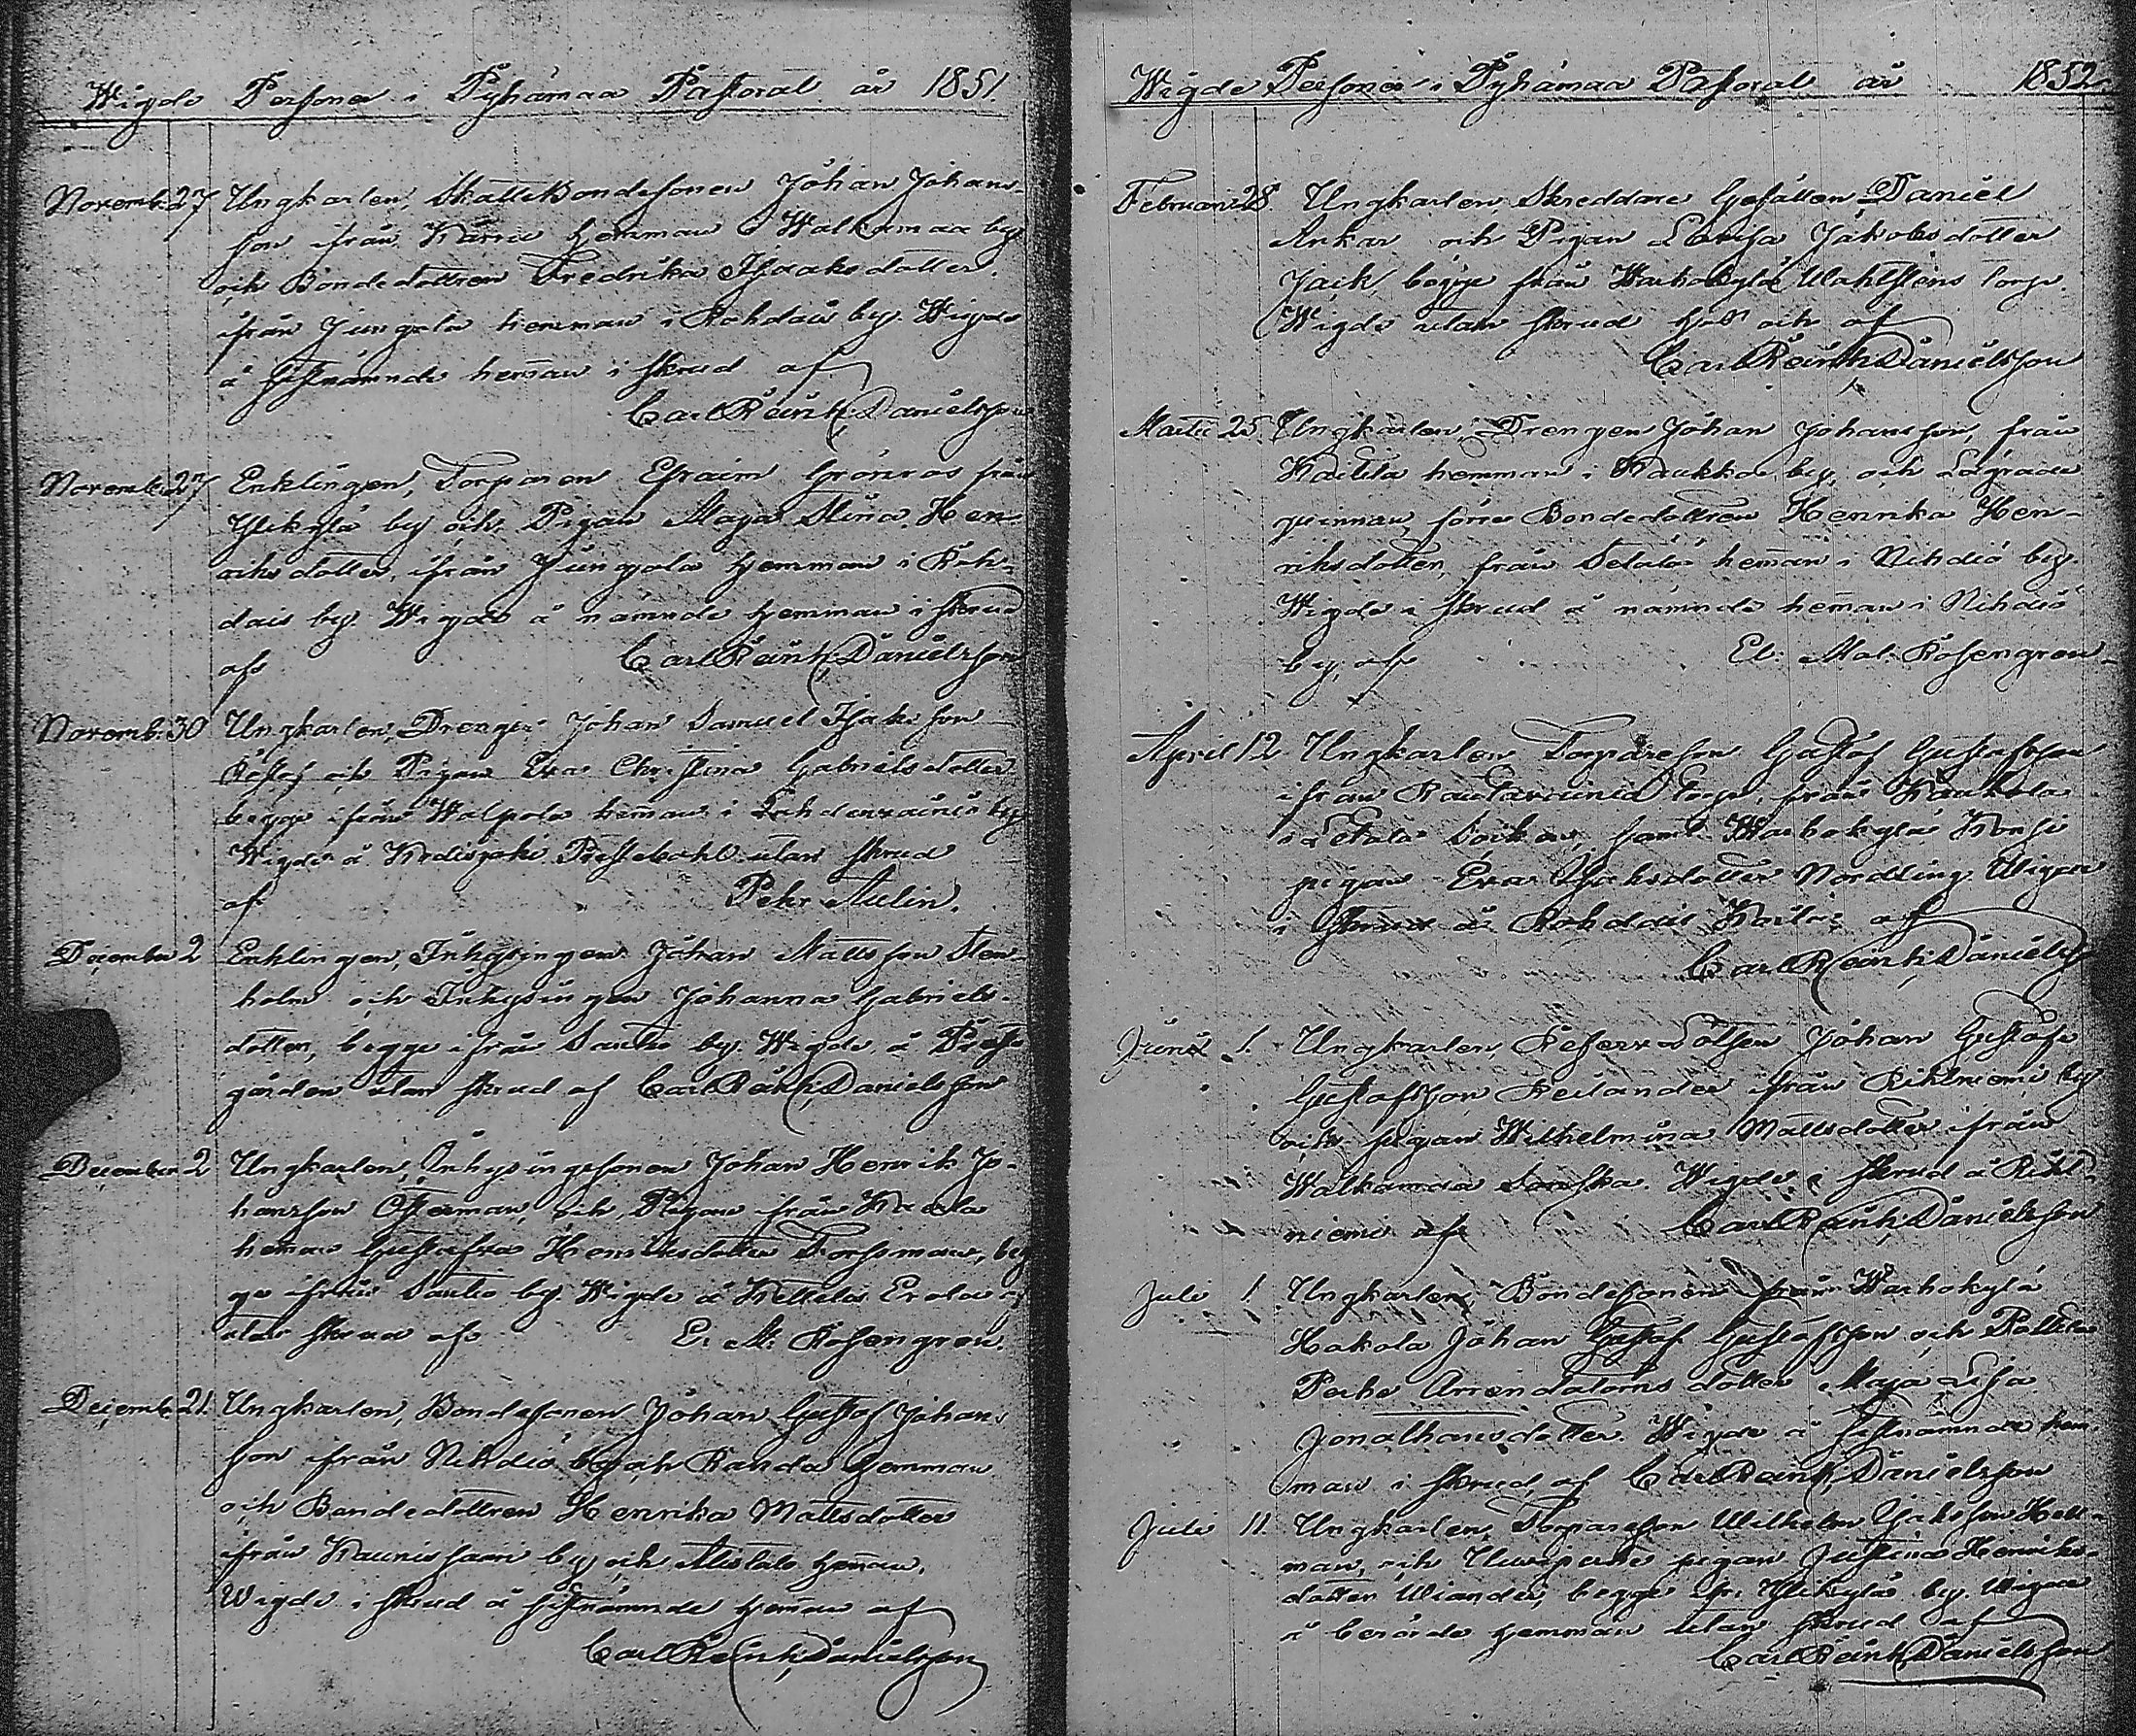 Wigde Personer i Pyhämaa Pastorat år 1851.
Novemb. 27 Ungkarlen, Skattebondesonen Johan Johans-
son ifrån hemman i Walkamaa by
och Bondedottren Fredrika Isaaksdotter
ifrån Jungola hemman i Rohdais by. Wigde
å sistnämnde hemman i skrud af
Carl Reinh. Danielsson
Novemb. 27 Enklingen, Torparen Efraim Grönroos från
Ylikylä by och Pigan Maja Stina Hen-
riksdotter, ifrån Jungola hemman i Roh-
dais by. Wigde å nämnde hemman i skrud
af Carl Reinh. Danielsson
Novemb. 30 Ungkarlen, Drengen Johan Samuel Isaksson
och Pigan Eva Christina Gabrielsdotter
begge ifrån Walpola hemman i by
Wigde å utan skrud
af Pehr Aulin.
December 2 Enklingen, Inhysingen Johan Mattsson Sten-
holm och Inhysingen Johanna Gabriels-
dotter, begge ifrån Santio by. Wigde å Prest-
gården utan skrud af Carl Reinh. Danielsson
December 2 Ungkarlen, Inhysingesonen Johan Henrik Jo-
hansson Österman, och Pigan från
heman Gustafva Henriksdotter Forsman, beg-
ge ifrån Santio by. Wigde å
utan skrud af E. M. Rosengren.
Decemb. 21. Ungkarlen, Bondesonen Johan Gustaf Johans-
son ifrån Nihdiö by och Randa hemman
och Bondedottren Henrika Mattsdotter
ifrån Kaunissaari by och Alistalo heman.
Wigde i skrud å sistnämnde heman af
Carl Reinh. Danielsson
Wigde Personer i Pyhämaa Pastorat år 1852.
Februari 28. Ungkarlen, Skreddare Gesällen Daniel
Ankar och Pigan Lovisa Jakobsdotter
Jaik, begge från Warhokylä Wahlstens torp.
Wigde utan skrud af
Carl Reinh. Danielsson
Martii 25. Ungkarlen, Drengen Johan Johansson, från
Kaitila hemman i Kaukka by, och Lägrade
qvinnan, förre Bondedottren Henrika Hen-
riksdotter, från hemman i Nihdiö by.
Wigde i skrud å nämnde heman i Nihdiö
by, af El. Mat. Rosengren
April 12 Ungkarlen Torpareson Gustaf Gustafsson
ifrån torp, från Kaukola
i Letala Socken, samt Warhokylä
pigan Eva Isaksdotter Nordling. Wigde
i skrud å Rohdais af
Carl Reinh. Daniels
Junii 1. Ungkarlen, Reserv Lotsen Johan Gustaf
Gustafsson Reilander ifrån Rihtniemi by
och pigan Wilhelmina Mattsdotter ifrån
Walkamaa Wigde i skrud å Riht-
niemi af Carl Reinh. Danielsson
Juli 1 Ungkarlen Bondesonen från Warhokylä
Hakola Johan Gustaf Gustafsson och
Arrendatorns dotter Maja Lisa
Jonathansdotter. Wigde å sistnämnde hem-
man i skrud, af Carl Reinh. Danielsson
Juli 11. Ungkarlen, Torpareson Wilhelm Isaksson Hell-
man, och pigan Justina Henriks-
dotter Wiander, begge fr. Ylikylä by. Wigde
å berörde hemman utan skrud af
Carl Reinh. Danielsson